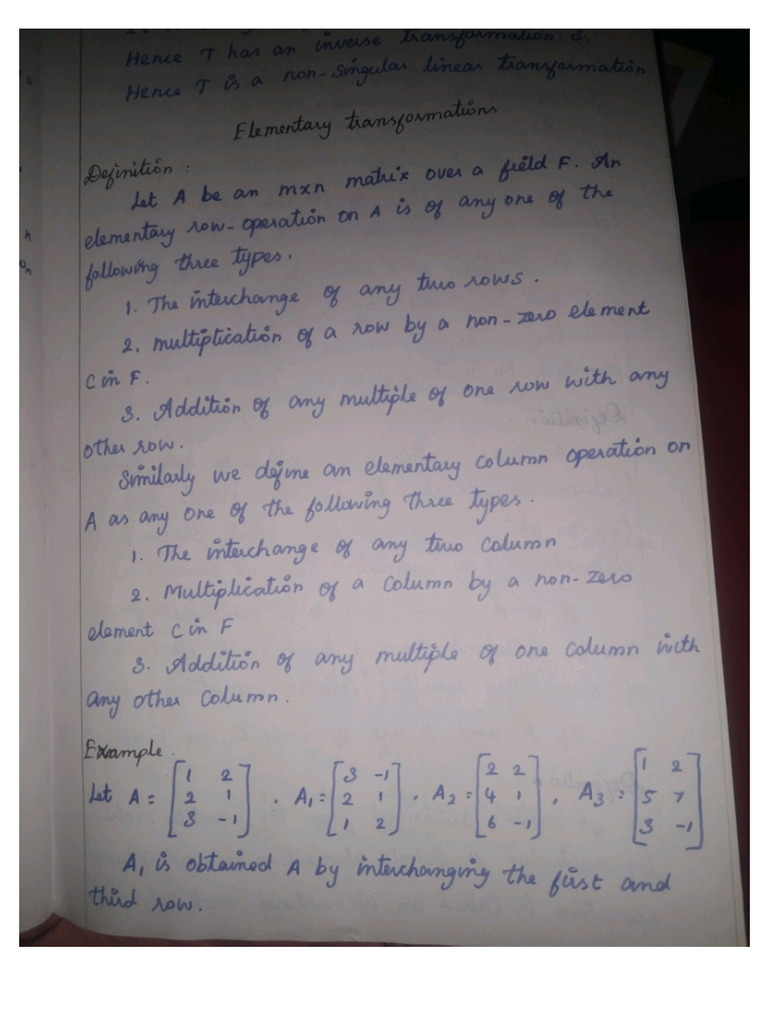 Hence T has an inverse transformation S.
Hence T is a non-singular linear transformation
Elementary transformations
Definition :
Let A be an m×n matrix over a field F. An
elementary row-operation on A is of any one of the
following three types.
1. The interchange of any two rows.
2. multiplication of a row by a non-zero element
C in F.
3. Addition of any multiple of one row with any
other row.
Similarly we define an elementary column operation on
A as any one of the following three types.
1. The interchange of any two column
2. Multiplication of a column by a non-zero
element C in F
3. Addition of any multiple of one column with
any other column.
Example.
Let A = [1 2; 2 1; 3 -1], A₁ = [3 -1; 2 1; 1 2], A₂ = [2 2; 4 1; 6 -1], A₃ = [1 2; 5 7; 3 -1]
A₁ is obtained A by interchanging the first and
third row.